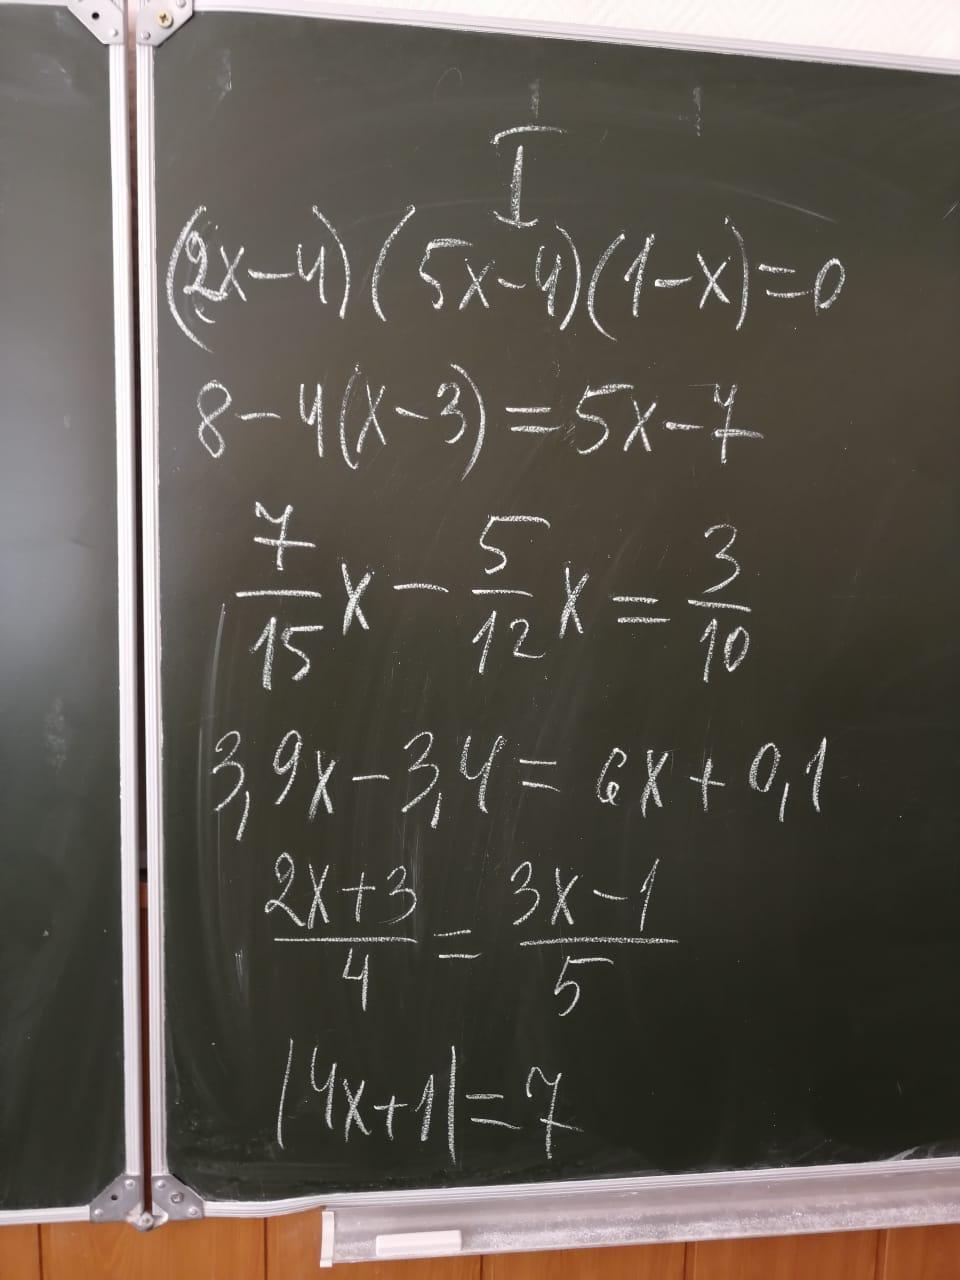 I
(2x-4)(5x-4)(1-x)=0
8-4(x-3)=5x-7
7/15 x - 5/12 x = 3/10
3,9x-3,4=6x+0,1
(2x+3)/4 = (3x-1)/5
|4x+1|=7